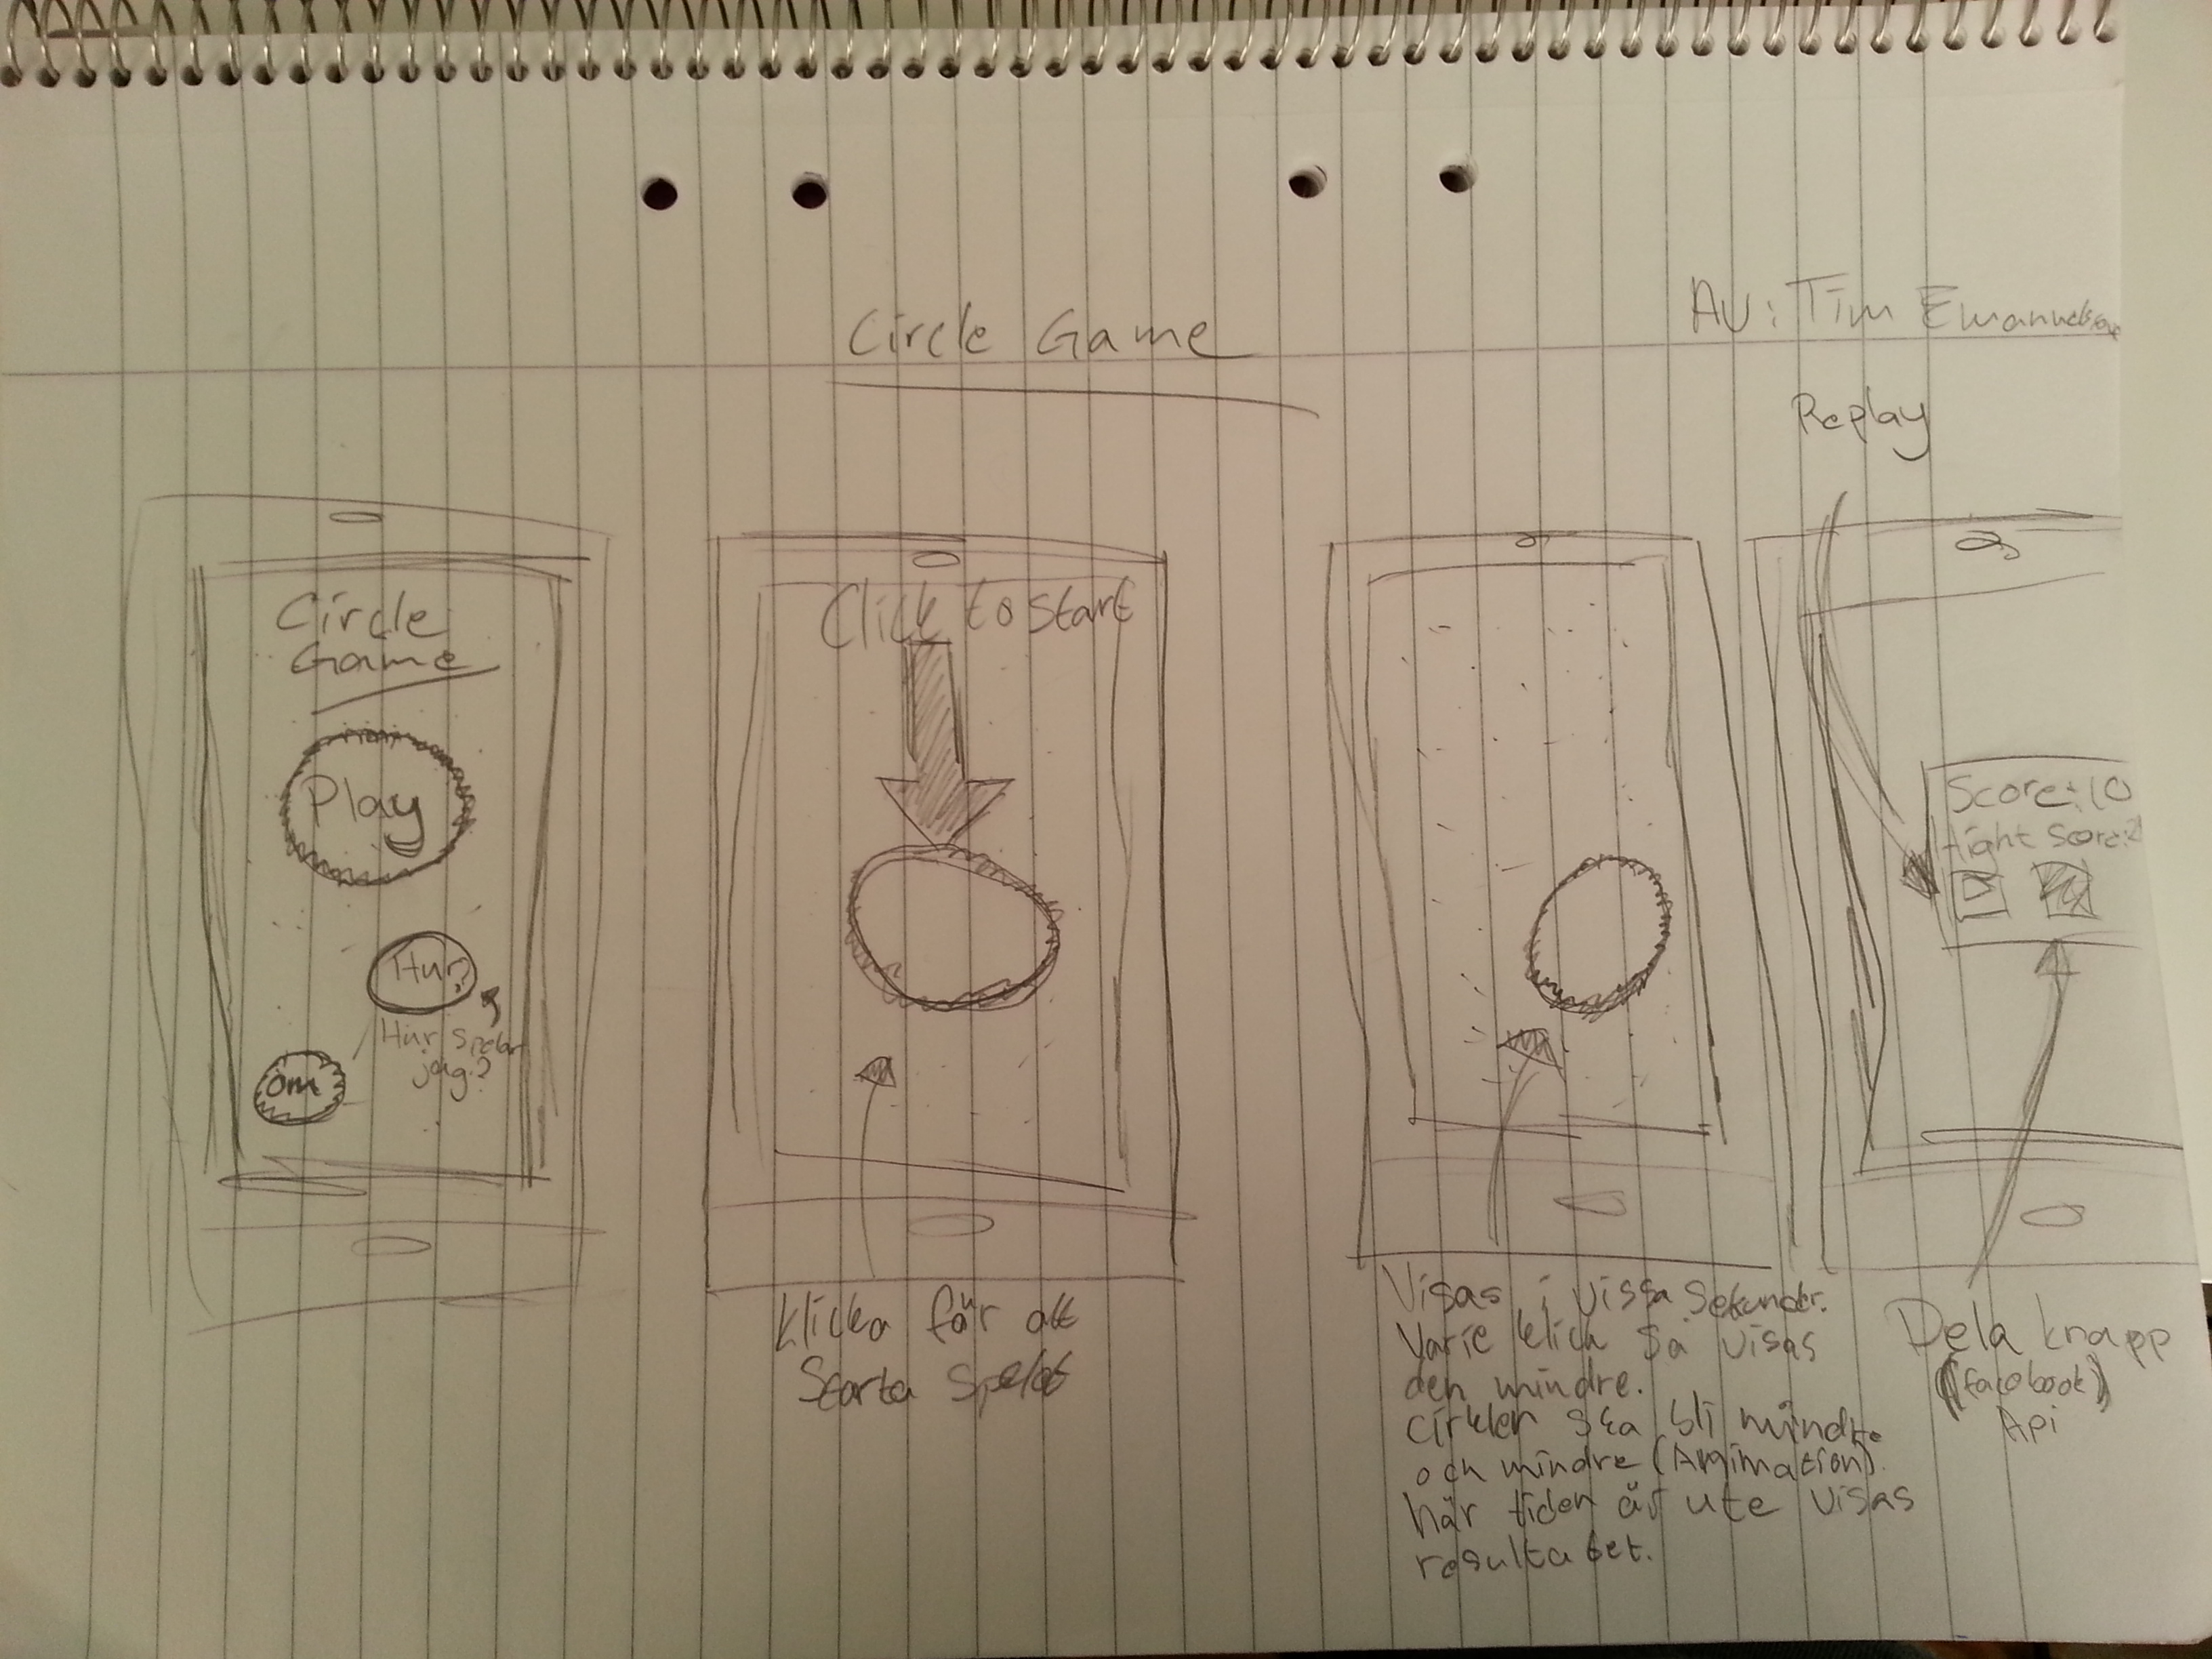 Circle Game
AV: Tim Emanuelsson
Replay
Circle
Game
Play
Hur?
Hur spelar
jag?
om
Click to start
Score: 10
Hight Score: 2
Klicka för att
Starta Spelet
Visas i vissa sekunder.
Varje klick så visas
den mindre.
Cirkeln ska bli mindre
och mindre (Animation).
när tiden är ute visas
resultatet.
Dela knapp
(facebook)
Api